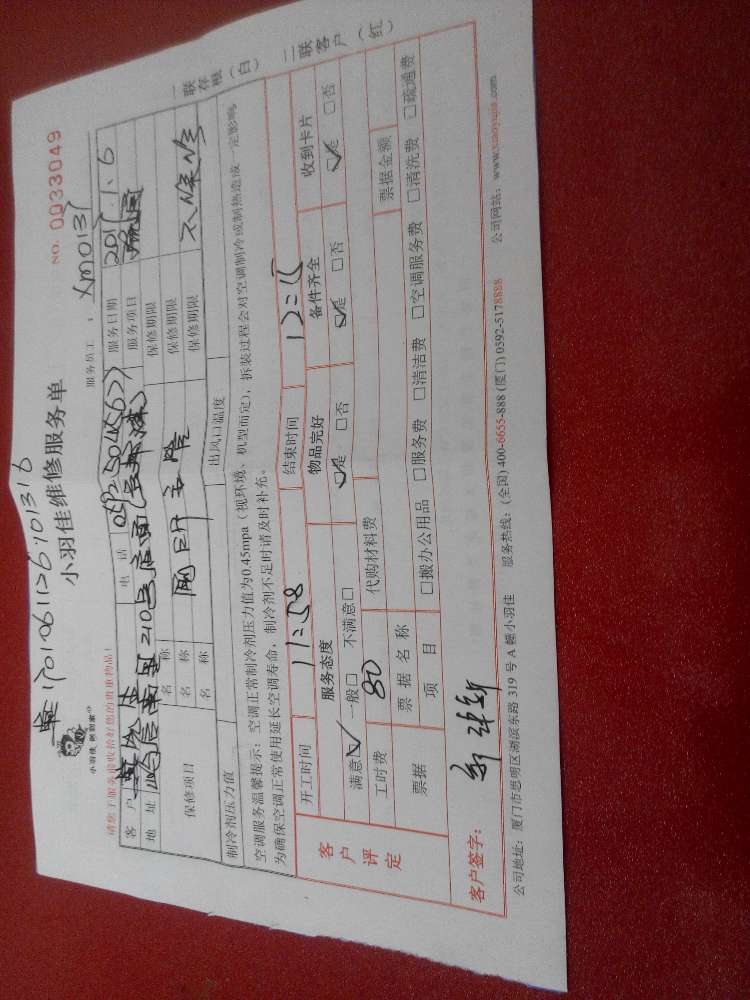 1701061126701316
小羽佳维修服务单
NO. 0033049
小羽佳 帮到家
服务员工: XM0131
请您于服务前收拾好您的贵重物品!
客户 电话 0592 5045677 服务日期 2017.1.6
地址 210号店面 服务项目
保修项目 名称 保修期限
名称 保修期限
名称 保修期限 不保修
制冷剂压力值 出风口温度
空调服务温馨提示:空调正常制冷剂压力值为0.45mpa(视环境、机型而定),拆装过程会对空调制冷或制热造成一定影响
为确保空调正常使用延长空调寿命,制冷剂不足时请及时补充。
一联存根(白) 二联客户(红)
客户评定
开工时间 11:58 结束时间 12:15
服务态度 物品完好 备件齐全 收到卡片
满意☑ 一般□ 不满意□ ☑是 □否 ☑是 □否 ☑是 □否
工时费 80 代购材料费
票据 票据名称 票据金额
项目 □搬办公用品 □服务费 □清洁费 □空调服务费 □清洗费 □疏通费
客户签字:
公司地址:厦门市思明区湖滨东路 319 号 A 幢小羽佳 服务热线:(全国) 400-6655-888 (厦门) 0592-5178888 公司网站:www.xiaoyujia.com